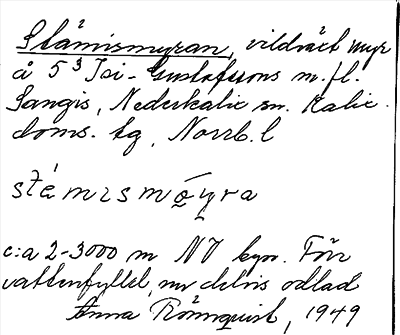 Stämismyran, vildväxt myr
å 5³ Isi-Gustafssons m.fl.
Sangis, Nederkalix sn. Kalix
doms. tg, Norrb. l
stä́mɪsmɷ̀yra
c:a 2-3000 m NV byn. Förr
vattenfylld, nu delvis odlad
Anna Rönnquist, 1949